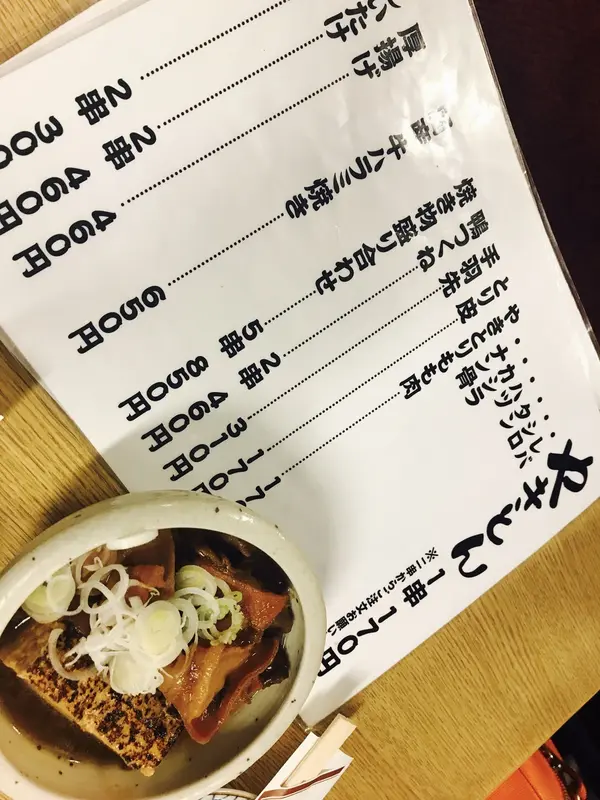 やきとん 1串 170円
※二串からご注文お願い
・レバ
・シロ
・タン
・ハツ
・カシラ
・ナン骨
やきとりもも肉 17
とり皮 170円
手羽先 310円
鴨つくね 2串 460円
焼き物盛り合わせ 5串 850円
産牛ハラミ焼き 650円
厚揚げ 460円
いたけ 2串 460円
2串 300